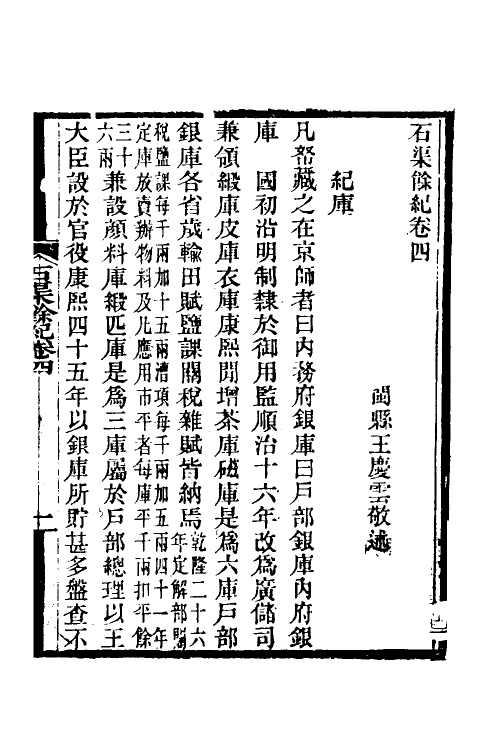 石渠餘紀卷四
閩縣王慶雲敬述
紀庫
凡帑藏之在京師者曰內務府銀庫曰戶部銀庫內府銀
庫　國初沿明制隸於御用監順治十六年改為廣儲司
兼領緞庫皮庫衣庫康熙閒增茶庫磁庫是為六庫戶部
銀庫各省歲輸田賦鹽課關稅雜賦皆納焉乾隆二十六年定解部關
稅鹽課每千兩加十五兩漕項每千兩加五兩四十一年
定庫放賣辦物料及凡應用市平者每庫平千兩扣平餘
三十六兩兼設顏料庫緞匹庫是為三庫屬於戶部總理以王
大臣設於官役康熙四十五年以銀庫所貯甚多盤查不
石渠餘紀卷四
一